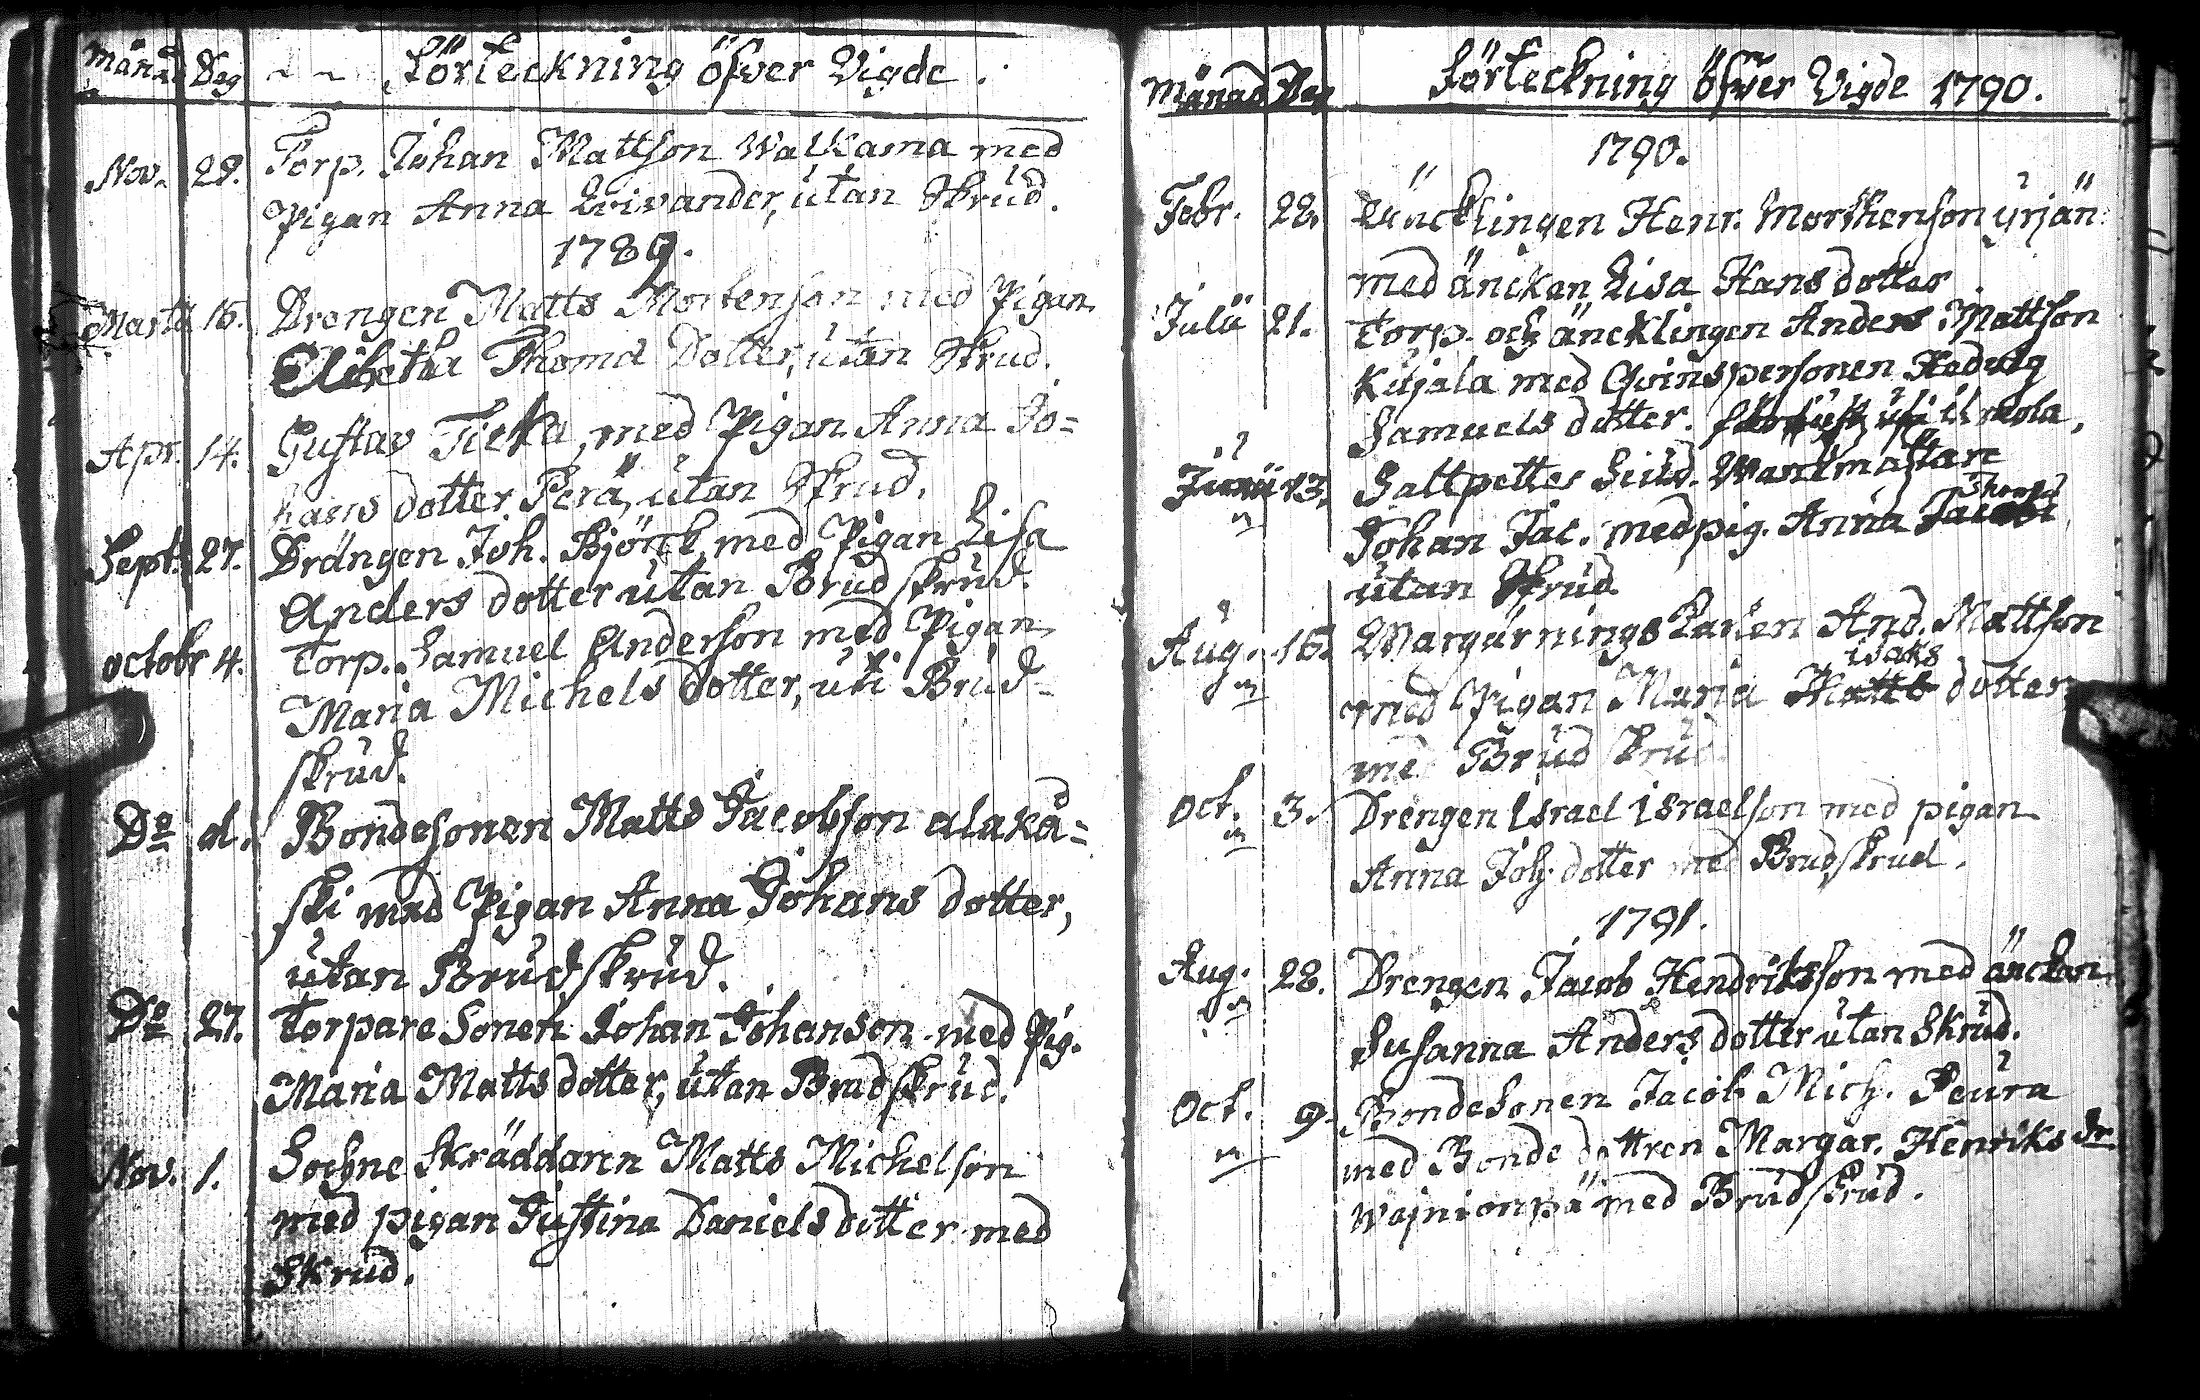 Månad Dag Förteckning öfver Vigde.
Nov. 29. Torp. Johan Mattson Walkama med
Pigan Anna Qvivander, utan Skrud.
1789.
Martii 15. Drengen Matts Mortenson med Pigan
Elisetha Thoma Dotter, utan Skrud.
Apr. 14. Gustav Tieka, med Pigan Anna Jo=
hans dotter Perä, utan Skrud.
Sept. 27. Drängen Joh. Björck med Pigan Lisa
Anders dotter utan Brud skrud.
octobr 4. Torp. Samuel Anderson med Pigan
Maria Michels dotter, uti Brud-
skrud.
Do d. Bondesonen Matts Jacobson alakå=
ski med Pigan Anna Johans dotter,
utan Brudskrud.
Do 27. Torpare Sonen Johan Johanson med Pig.
Maria Matts dotter, utan Brudskrud.
Nov. 1. Sochne Skräddaren Matts Michelson
med pigan Justina Daniels dotter med
Skrud.
Månad Dag Förteckning öfver Vigde 1790.
1790.
Febr. 28. Äncklingen Henr. Morthenson yrjän
med änckan Lisa Hans dotter
Julii 21. Torp. och äncklingen Anders Mattson
Kujala med Qvinspersonen Hedvig
Samuels dotter.
Junii 13. Saltpetter Siud. Wantmästare
Johan Jac. med pig. Anna
utan Skrud
Aug. 15. Wargärnings Karlen And. Mattson
isaks
med Pigan Maria Matts dotter
med Brud skrud
Oct. 3. Drengen Israel Israelson med pigan
Anna Joh. dotter med Brudskrud.
1791.
Aug. 28. Drengen Jacob Hendriksson med änckan
Susanna Anders dotter utan Skrud.
Oct. 9. Bondesonen Jacob Mich. Peura
med Bonde dottren Margar. Henriks dr
Wajnionpä med Brudskrud.